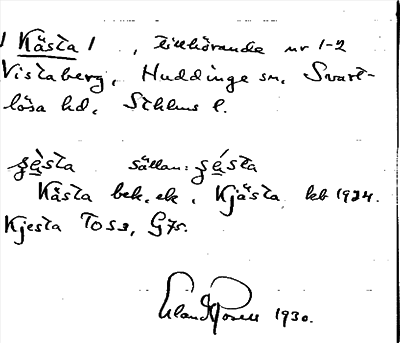 / Kästa / , tillhörande nr 1-2
Vistaberg, Huddinge sn, Svart-
lösa hd, Sthlms l.
sällan:
Kästa bek. ek., Kjästa kb 1924.
Kjesta Toss, G7r.
Erland Rosell 1930.